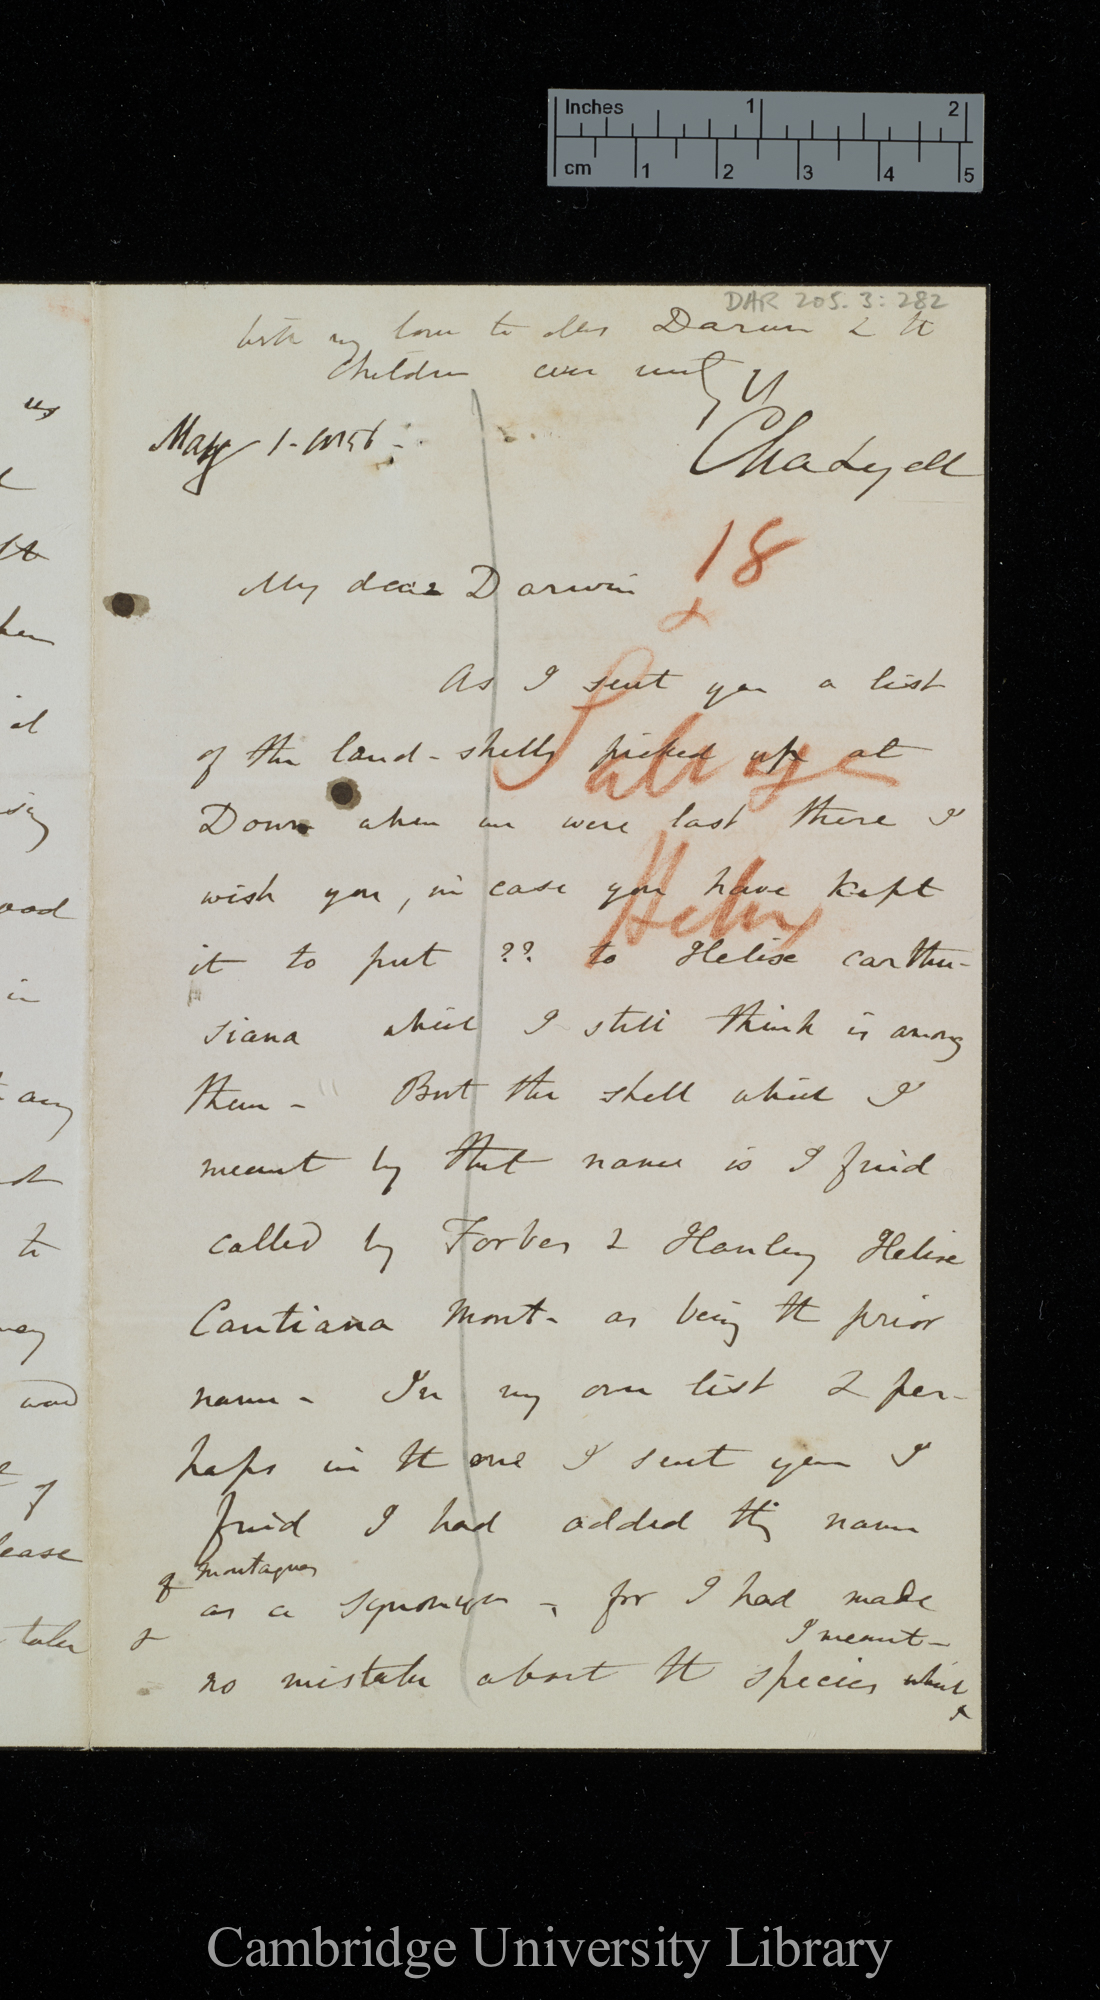 Inches 1 2
cm 1 2 3 4 5
DAR 205.3:282
with my love to Mrs Darwin & the
children ever most y
Cha Lyell
May 1. 1856.
18
My dear Darwin
&
As I sent you a list
of the land-shells picked up at
Salvages
Down when we were last there I
wish you, in case you have kept
Helix
it to put ?? to Helix carthu-
siana which I still think is among
them - But the shell which I
meant by that name is I find
called by Forbes & Hanley Helix
Cantiana Mont. as being the prior
name - In my own list & per-
haps in the one I sent you I
find I had added this name
of Montagues
as a synonym -, for I had made
I meant -
no mistake about the species which
us
lt
hen
al
ood
in
any
to
wood
of
lease
take
Cambridge University Library